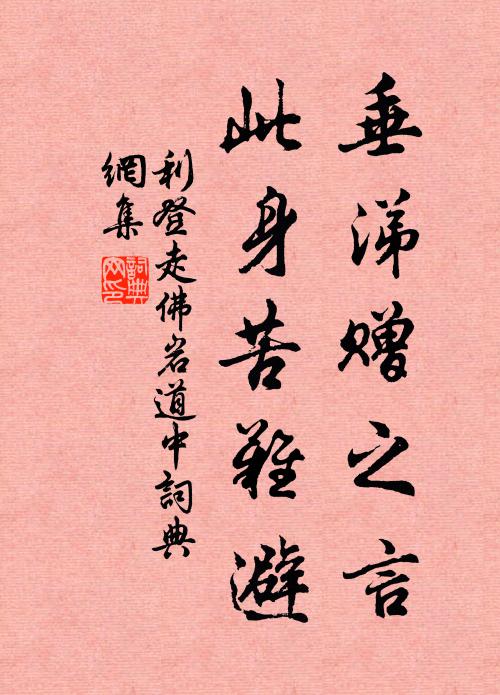 垂涕赠之言
此身苦難避
利登走佛岩道中詞典
網集
詞典
网印